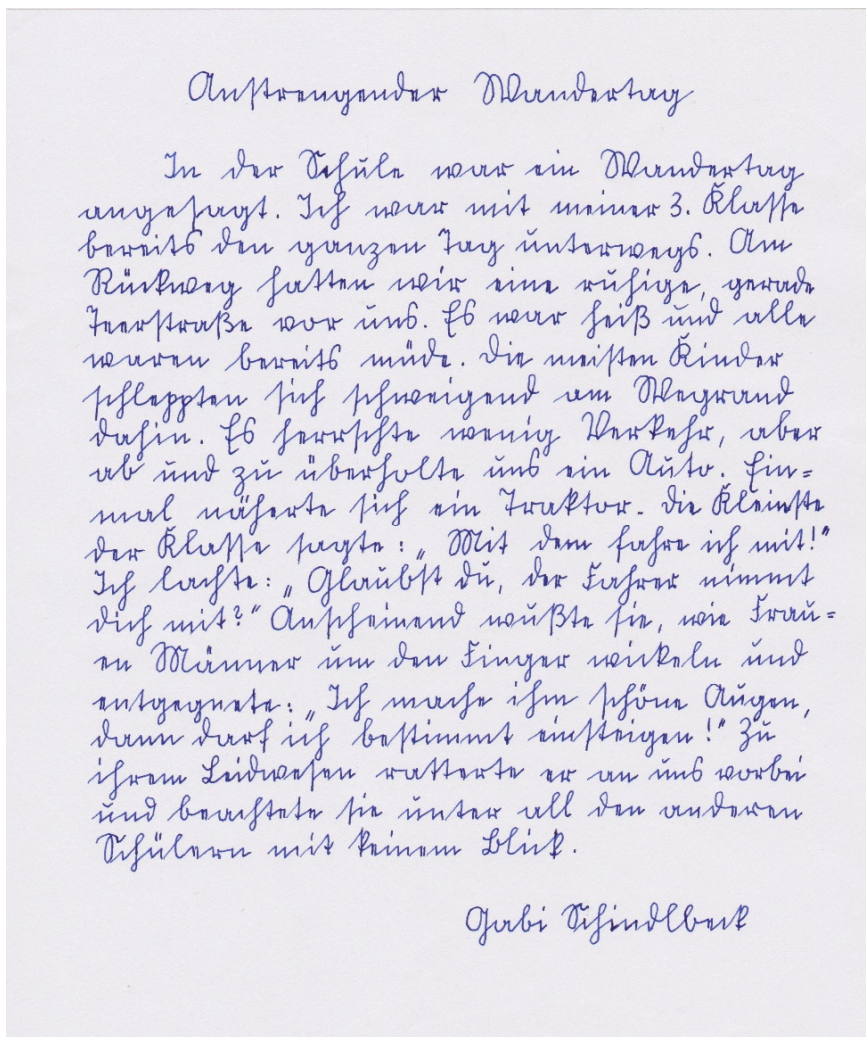 Anstrengender Wandertag
In der Schule war ein Wandertag
angesagt. Ich war mit meiner 3. Klasse
bereits den ganzen Tag unterwegs. Am
Rückweg hatten wir eine ruhige, gerade
Teerstraße vor uns. Es war heiß und alle
waren bereits müde. Die meisten Kinder
schleppten sich schweigend am Wegrand
dahin. Es herrschte wenig Verkehr, aber
ab und zu überholte uns ein Auto. Ein=
mal näherte sich ein Traktor. Die Kleinste
der Klasse sagte: „Mit dem fahre ich mit!"
Ich lachte: „Glaubst du, der Fahrer nimmt
dich mit?" Anscheinend wußte sie, wie Frau=
en Männer um den Finger wickeln und
entgegnete: „Ich mache ihm schöne Augen,
dann darf ich bestimmt einsteigen!" Zu
ihrem Leidwesen ratterte er an uns vorbei
und beachtete sie unter all den anderen
Schülern mit keinem Blick.
Gabi Schindlbeck